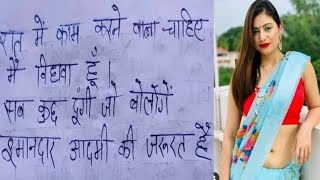 रात में काम करने वाला चाहिए
मैं विधवा हूँ ।
सब कुछ दूंगी जो बोलोगें
इमानदार आदमी की जरूरत हैं